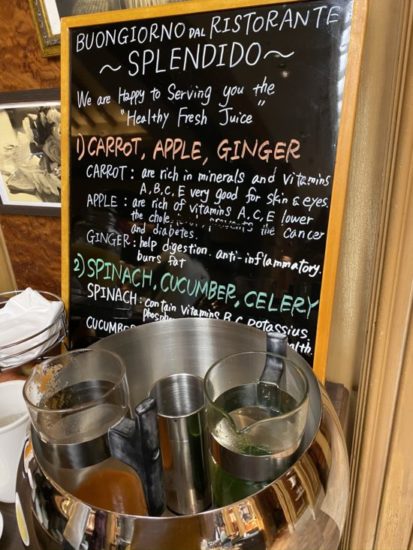 BUONGIORNO DAL RISTORANTE
~ SPLENDIDO ~
We are Happy to Serving you the
"Healthy Fresh Juice"
1) CARROT, APPLE, GINGER
CARROT : are rich in minerals and vitamins
A, B, C, E very good for skin & eyes.
APPLE : are rich of vitamins A, C, E lower
the the cancer
and diabetes.
GINGER : help digestion. anti-inflammatory.
burs fat
2) SPINACH, CUCUMBER, CELERY
SPINACH : contain vitamins B, C, potassium,
CUCUMBER